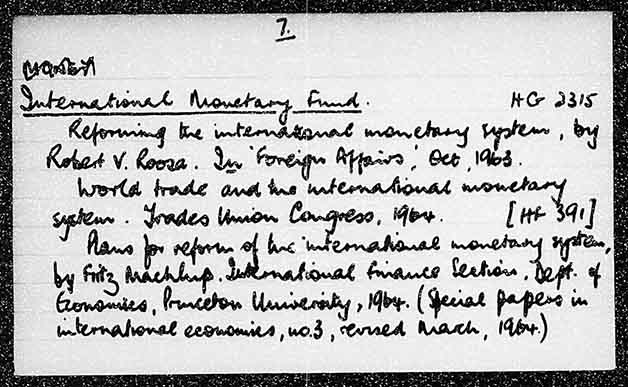 7.
MONEY
International Monetary Fund. HG 2315
Reforming the international monetary system, by
Robert V. Roosa. In 'Foreign Affairs', Oct, 1963.
World trade and the international monetary
system. Trades Union Congress, 1964. [HF 391]
Plans for reform of the international monetary system,
by Fritz Machlup. International Finance Section, Dept. of
Economics, Princeton University, 1964. (Special papers in
international economics, no.3, revised March, 1964.)